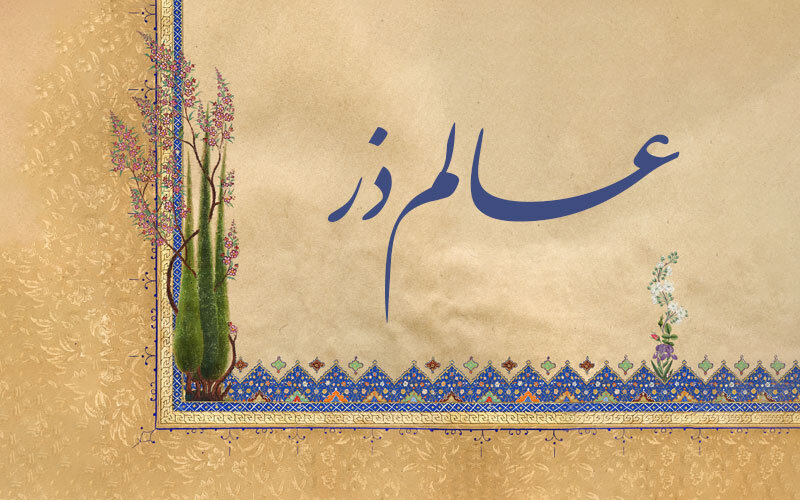 عالم ذر